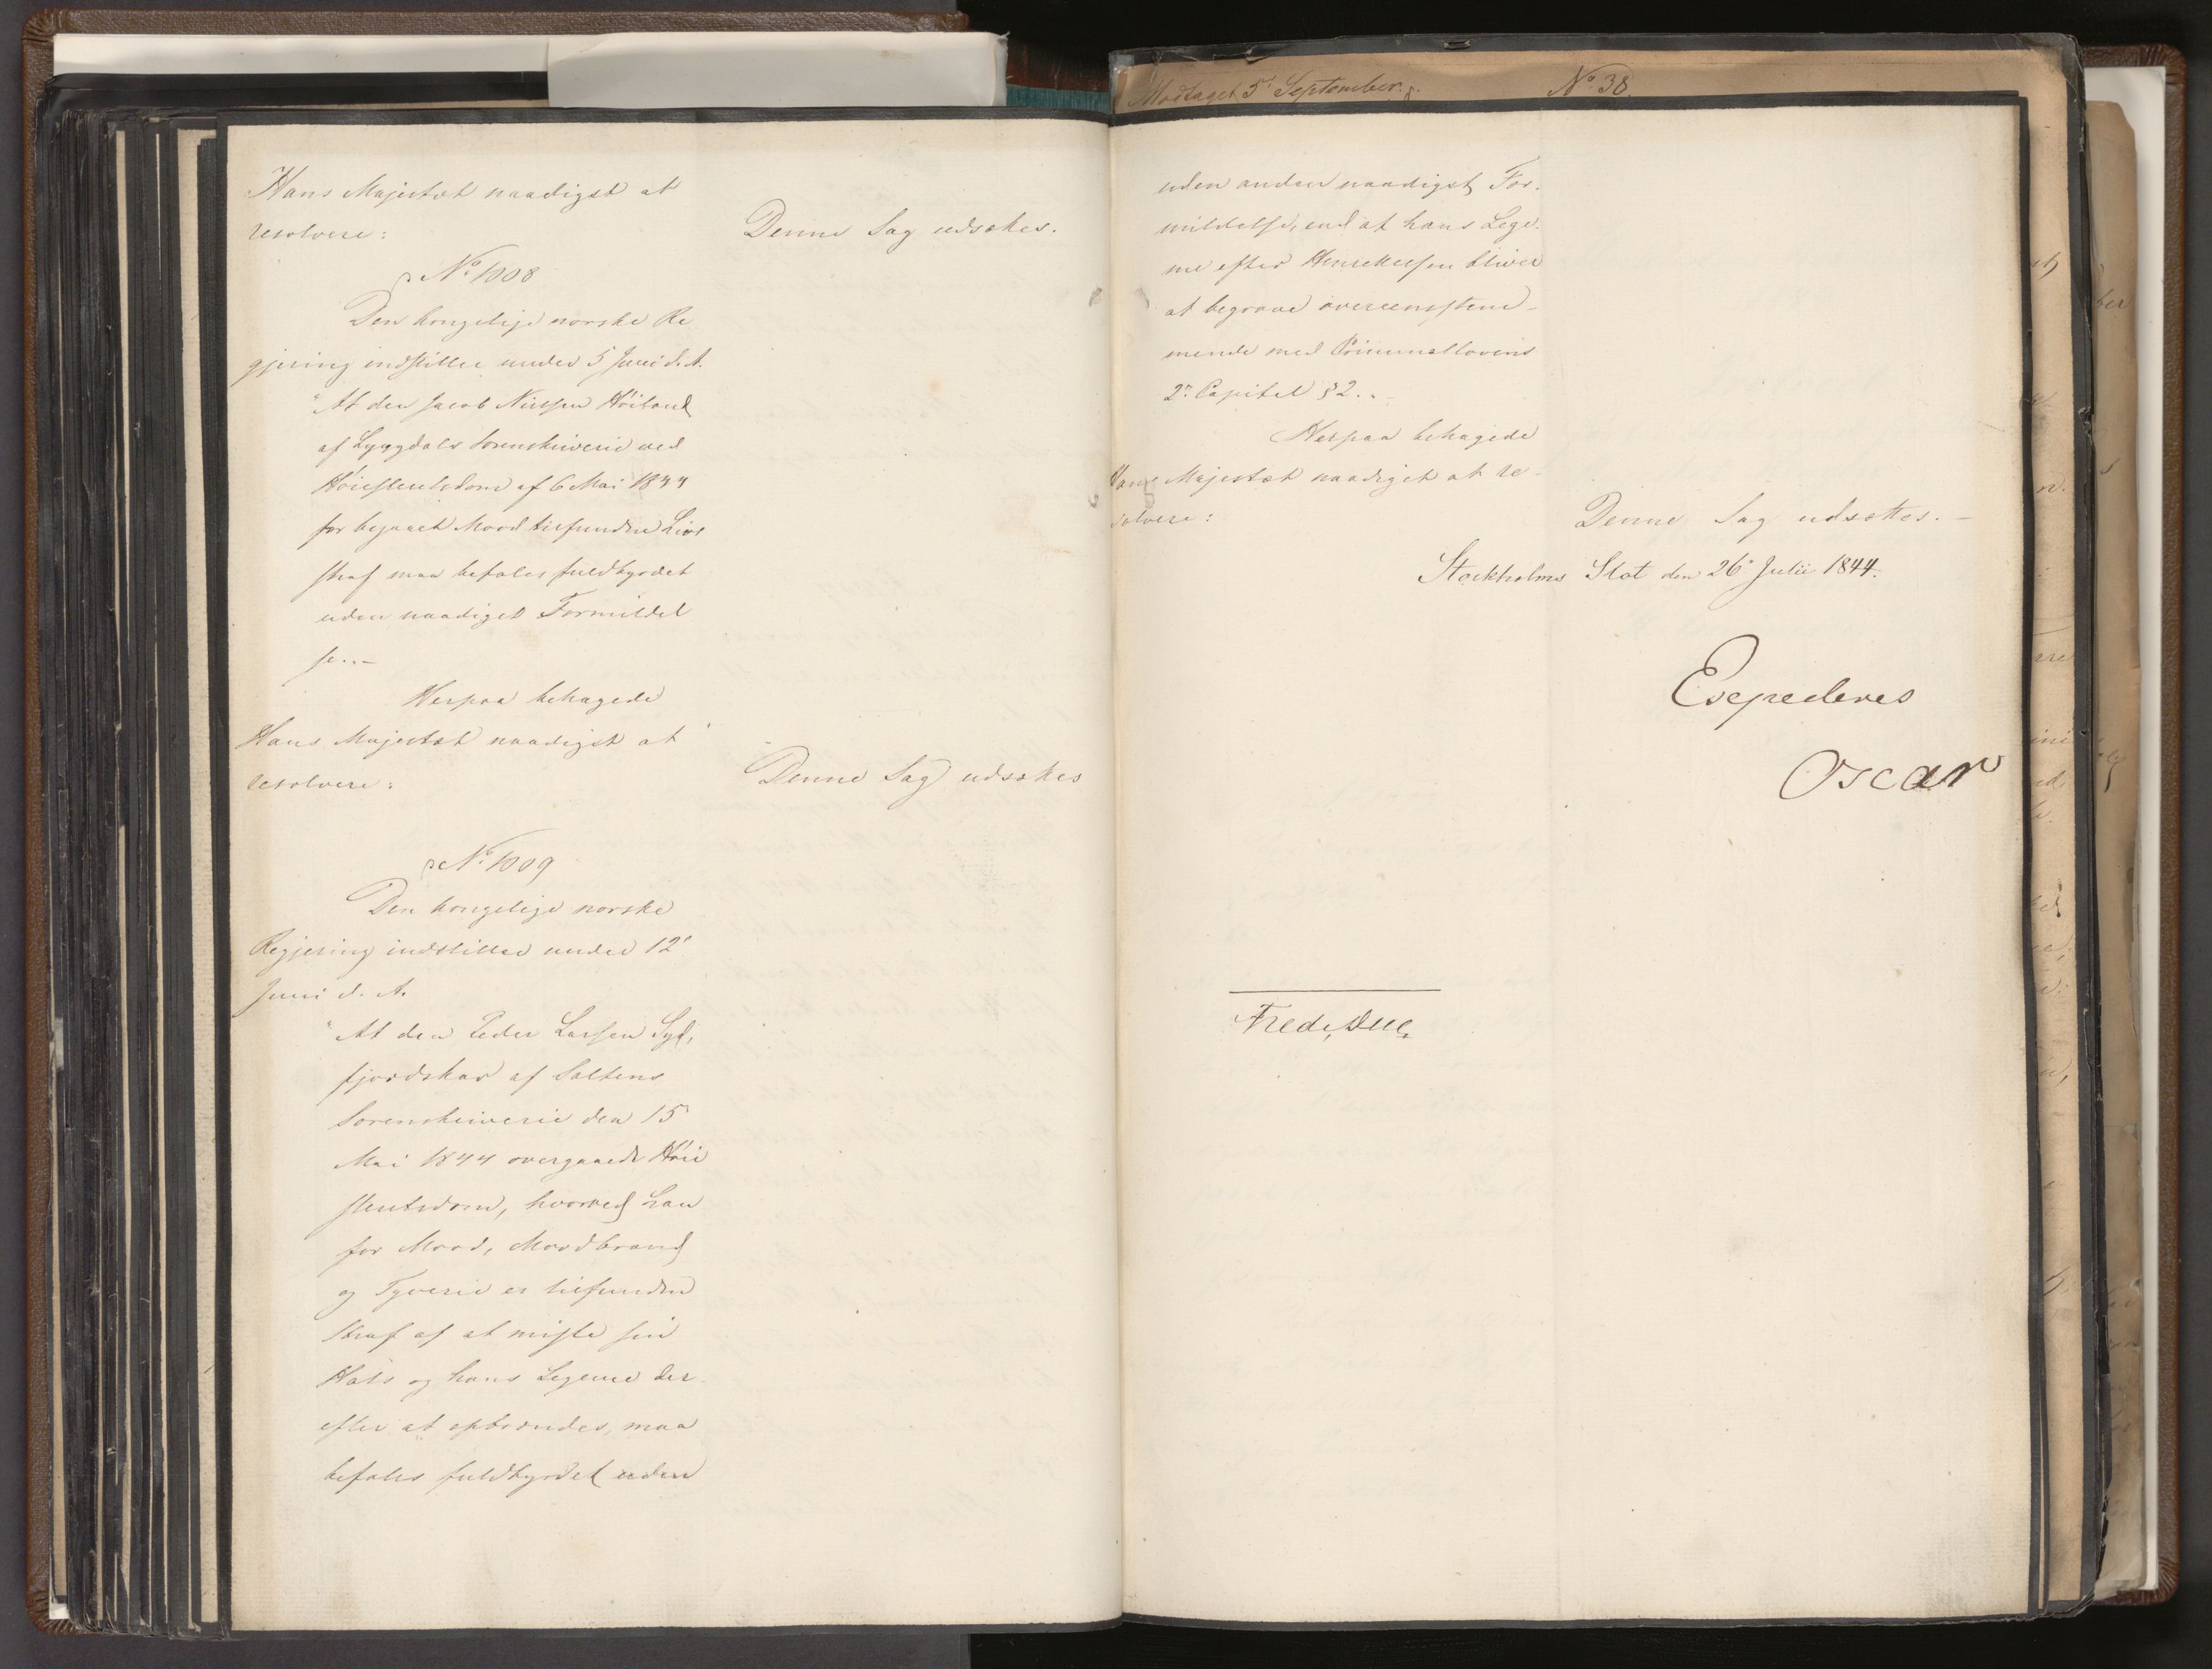 Hans Majestæt naadigst at
resolvere:
Denne Sag udsættes.
No 1008
Den kongelige norske Re
gjering indstiller under 5 Juni d. A.
"At den Jacob Nielsen Höiland
af Lyngdals Sorenskriverie ved
Höiesteretsdom af 6 Mai 1844
for begaaet Mord tilfundne Livs
straf maa befales fuldbyrdet
uden naadigst Formildel
se..-
Herpaa behagede
Hans Majestæt naadigst at
resolvere:
Denne Sag udsættes
No 1009
Den kongelige norske
Regjering indstiller under 12'
Juni d. A.
"At den Peder Larsen Syd,
fjordskar af Saltens
Sorenskriverie den 15
Mai 1844 overgaaede Höie
steretsdom, hvorved han
for Mord, Mordbrand
og Tyverie er tilfunden
Straf af at miste sin
Hals og hans Legeme der
efter at opbrændes, maa
befales fuldbyrdet uden
Modtaget 5t September. No 38.
uden anden naadigst For-
mildelse, end at hans Lege-
me efter Henrettelsen bliver
at begrave overeensstem-
mende med Criminallovens
2t Capitel §2..
Herpaa behagede
Hans Majestæt naadigst at re-
solvere:
Denne Sag udsættes. -
Stockholms Slot den 26' Julii 1844.
Expederes
Oscar
Fred. Due